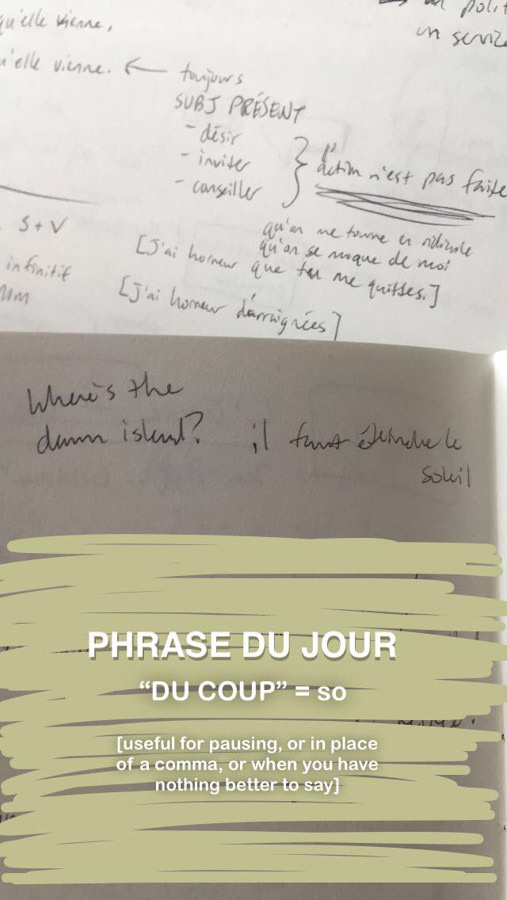 un polit
qu'elle vienne.
un service
qu'elle vienne. ← toujours
SUBJ PRÉSENT
- désir
- inviter
- conseiller
l'action n'est pas faite
S+V
infinitif
nom
qu'on me tourne en ridicule
qu'on se moque de moi
[J'ai horreur que tu me quittes.]
[J'ai horreur d'arraignées]
Where's the
damn island?
il faut éteindre le
soleil
PHRASE DU JOUR
“DU COUP” = so
[useful for pausing, or in place
of a comma, or when you have
nothing better to say]